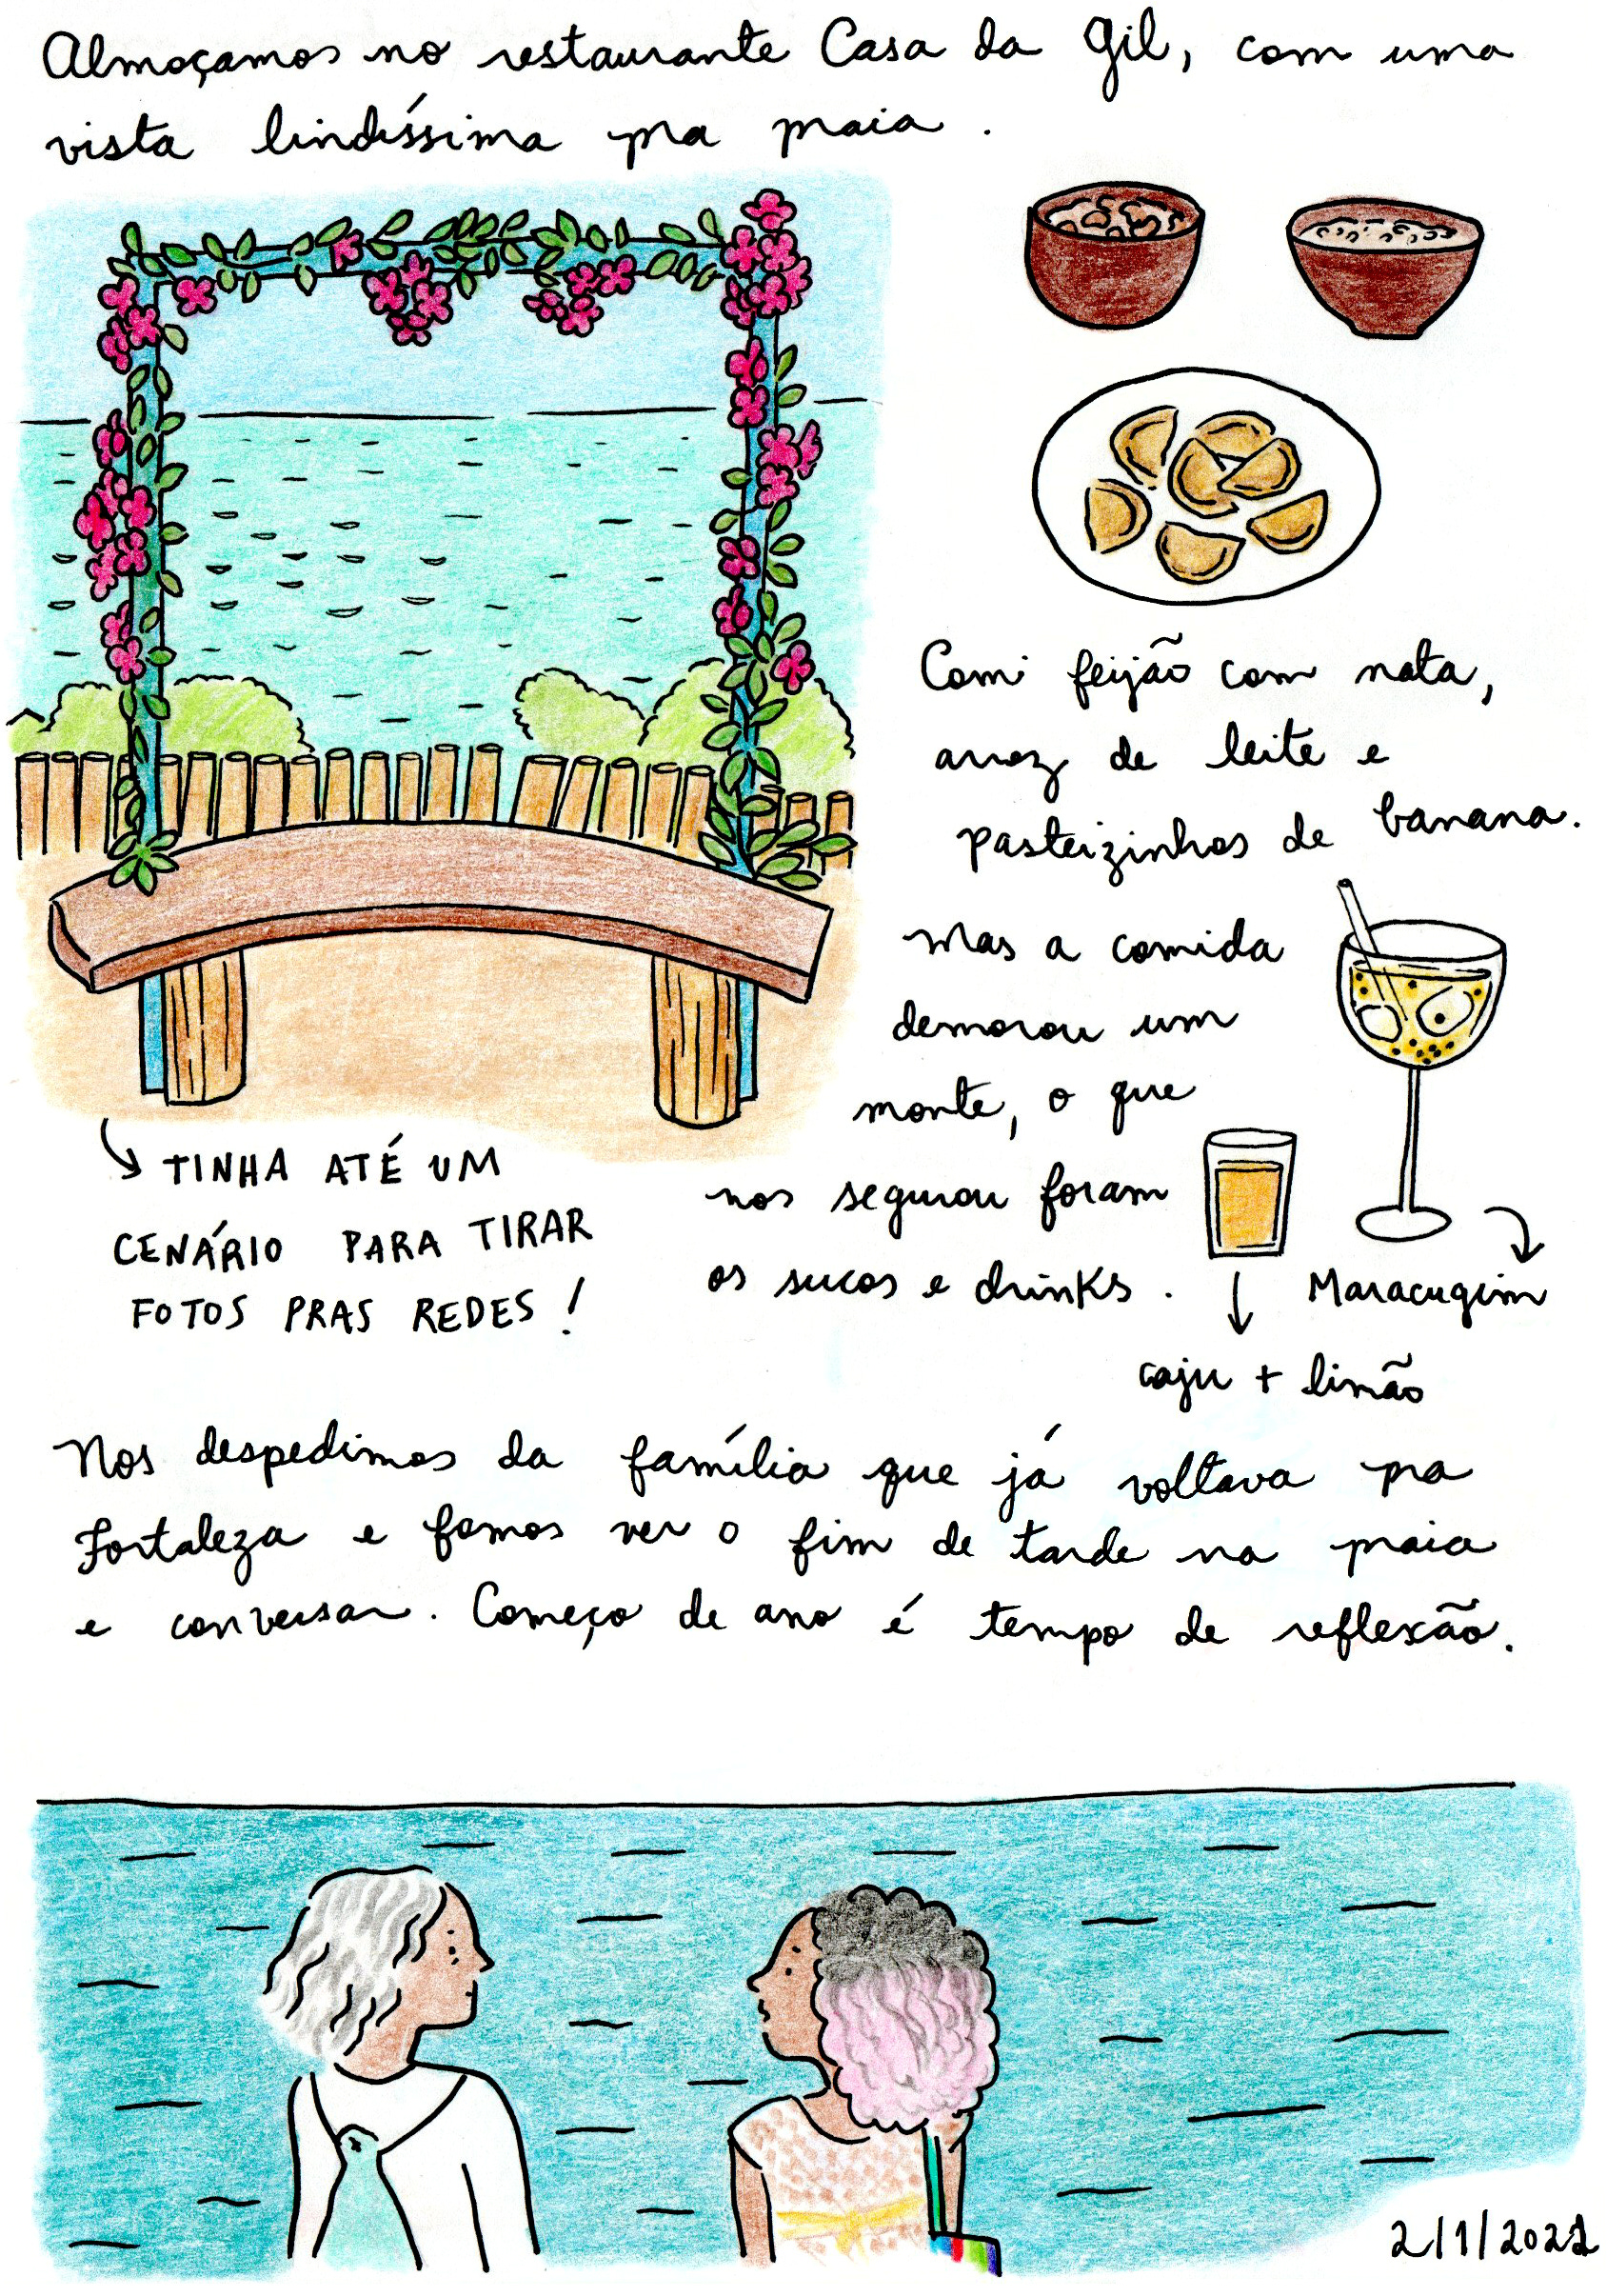 Almoçamos no restaurante Casa da Gil, com uma
vista lindíssima pra praia.
Comi feijão com nata,
arroz de leite e
pasteizinhos de banana.
Mas a comida
demorou um
monte, o que
nos segurou foram
os sucos e drinks.
Maracugim
caju + limão
TINHA ATÉ UM
CENÁRIO PARA TIRAR
FOTOS PRAS REDES!
Nos despedimos da família que já voltava pra
Fortaleza e fomos ver o fim de tarde na praia
e conversar. Começo de ano é tempo de reflexão.